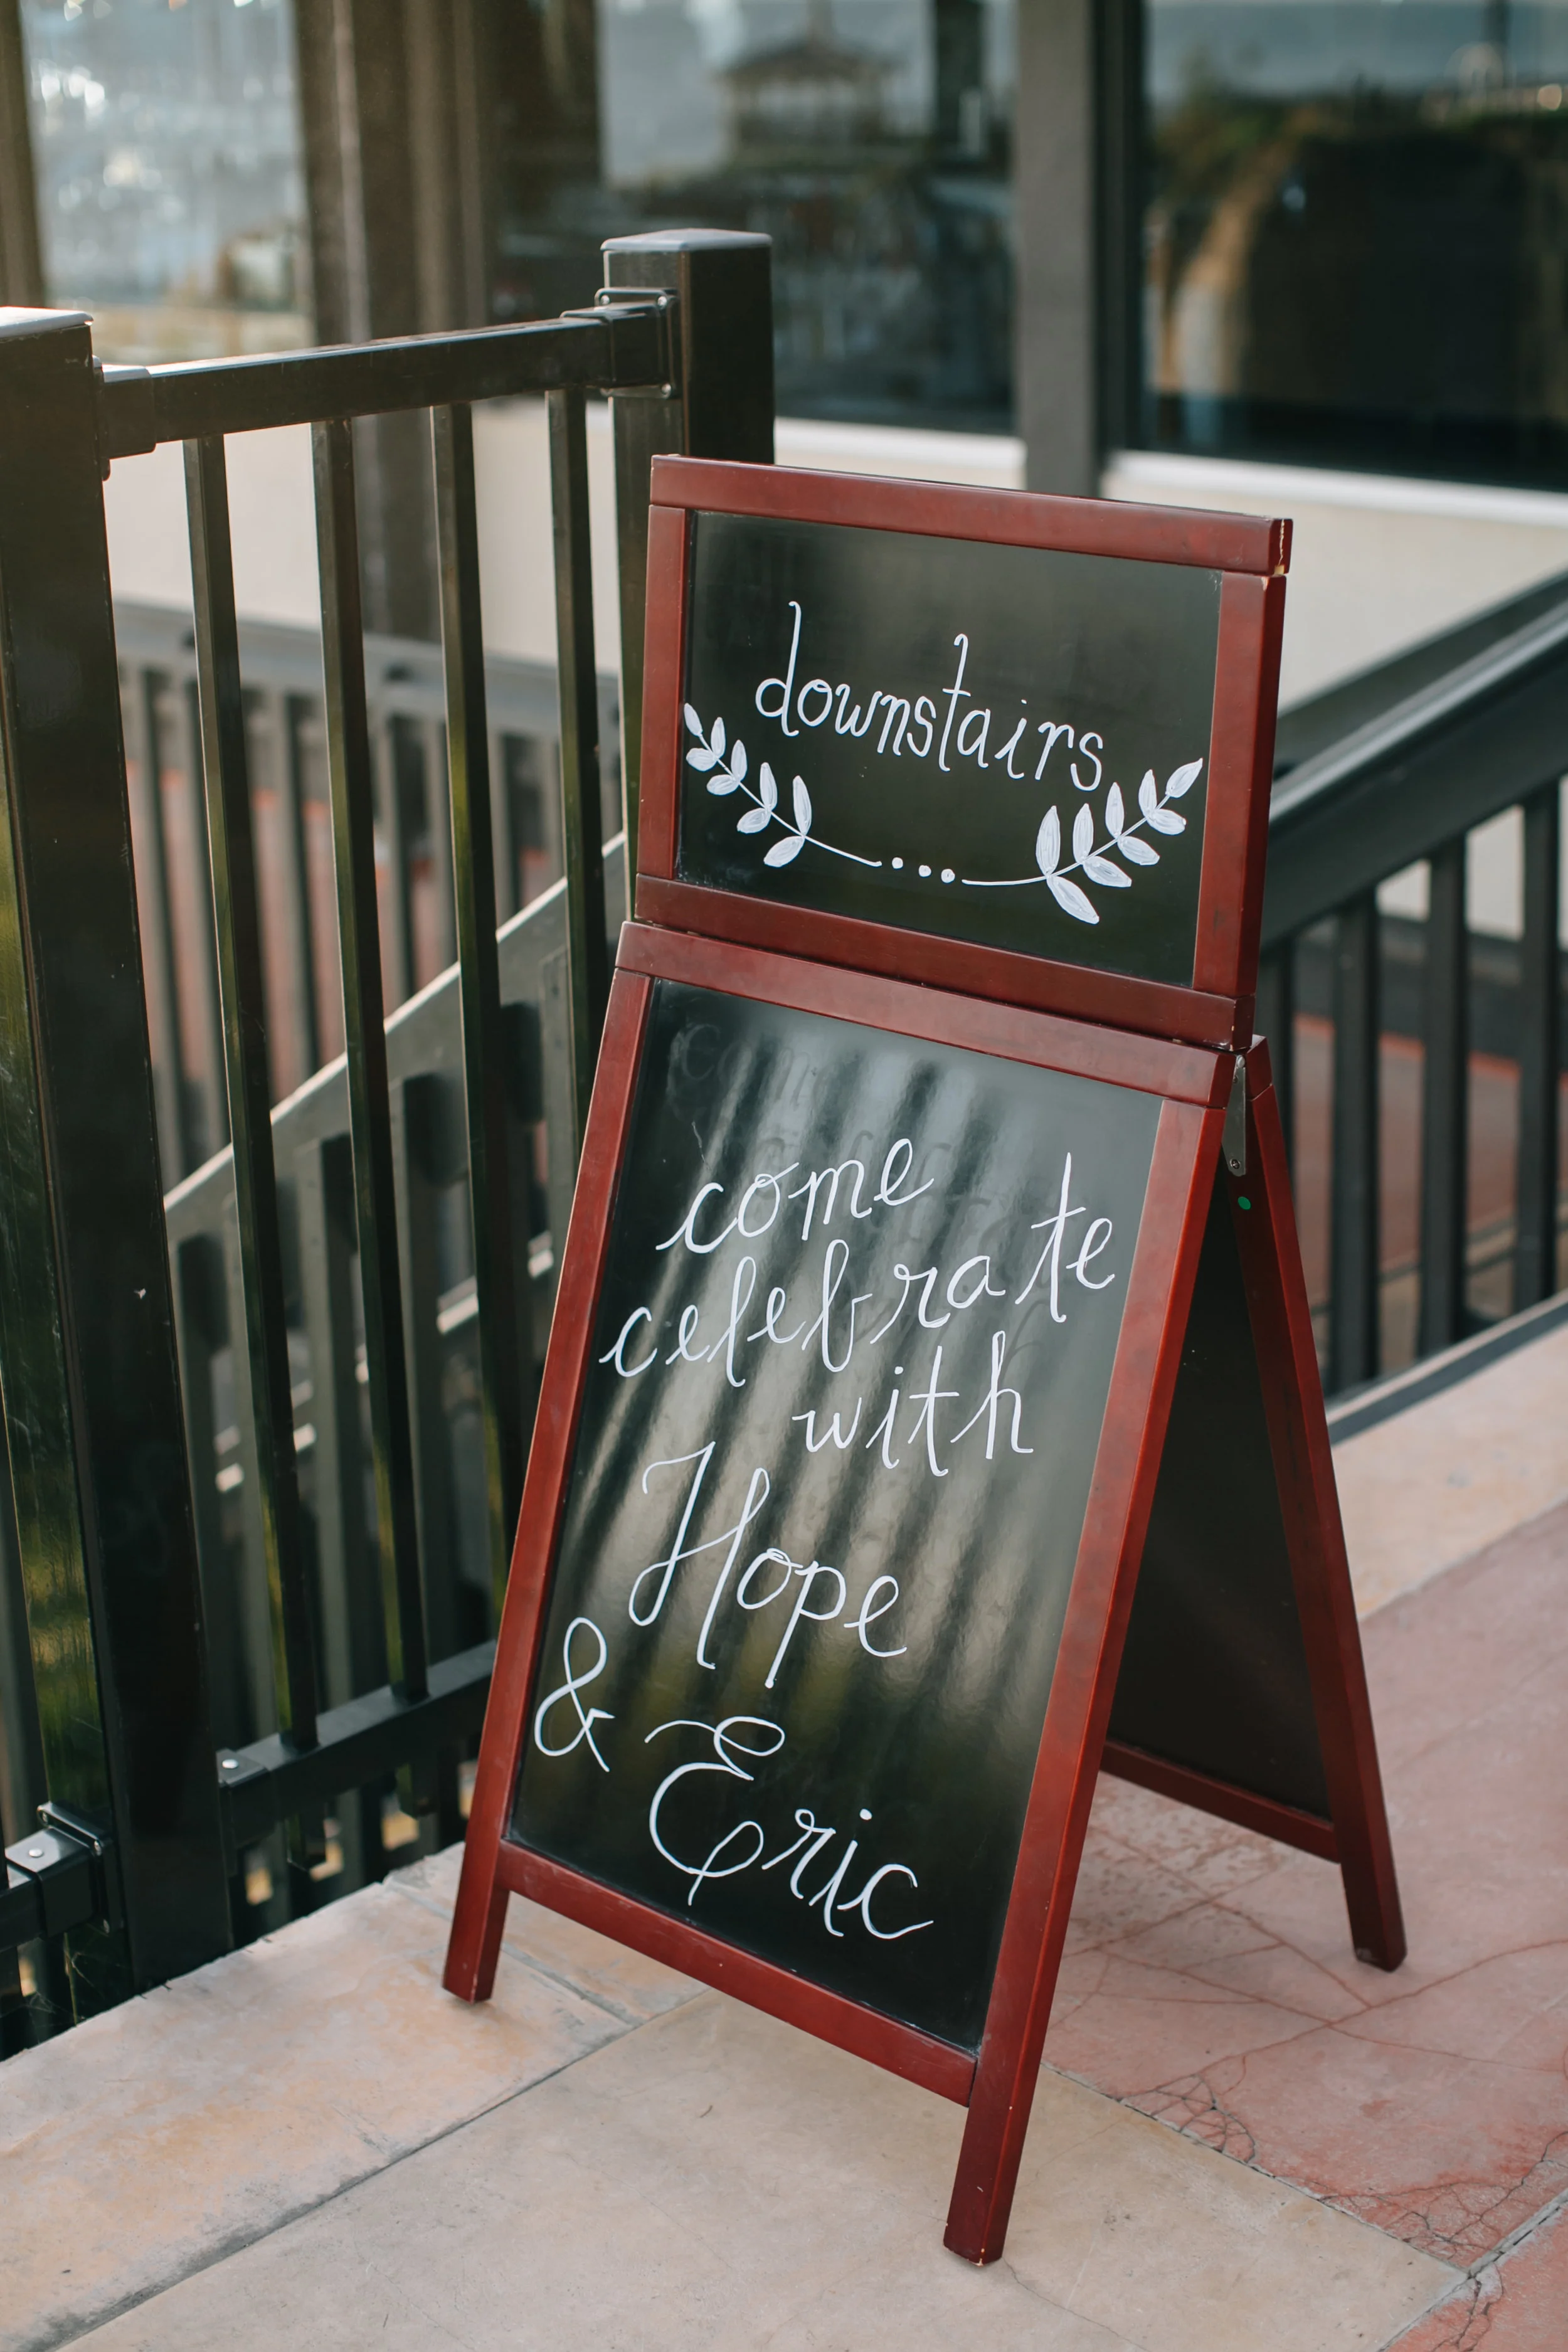 downstairs
come
celebrate
with
Hope
& Eric